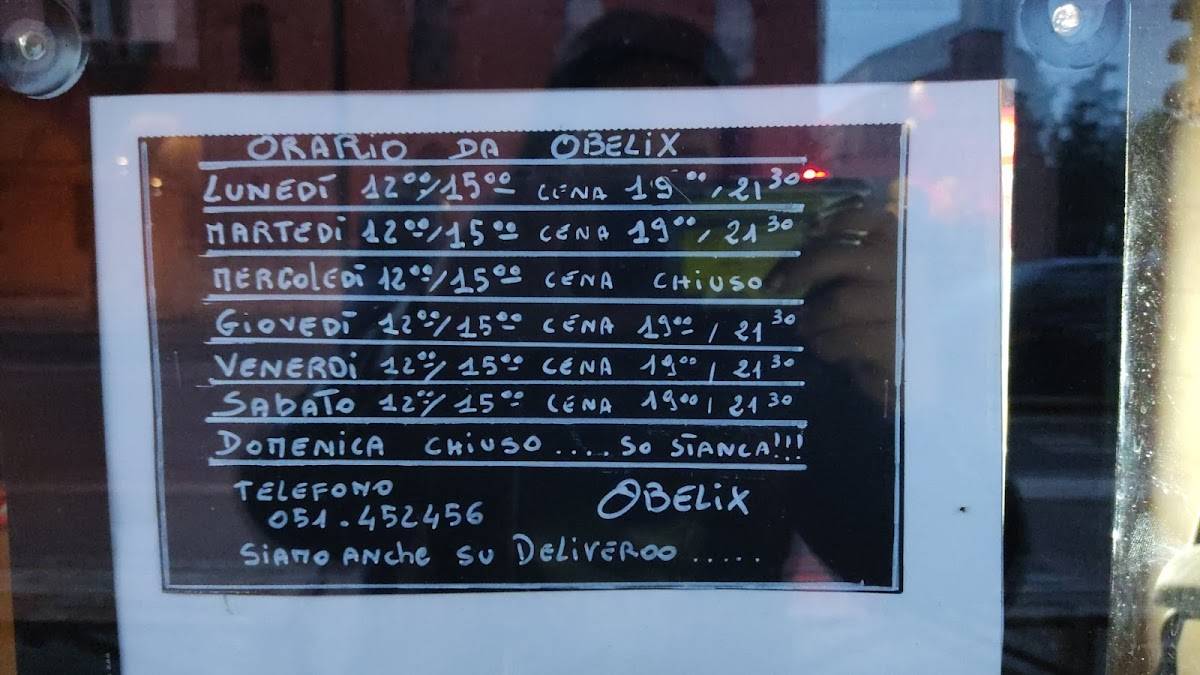 ORARIO DA OBELIX
LUNEDÍ 12⁰⁰/15⁰⁰ CENA 19⁰⁰/21³⁰
MARTEDÍ 12⁰⁰/15⁰⁰ CENA 19⁰⁰/21³⁰
MERCOLEDÍ 12⁰⁰/15⁰⁰ CENA CHIUSO
GIOVEDÍ 12⁰⁰/15⁰⁰ CENA 19⁰⁰/21³⁰
VENERDI 12⁰⁰/15⁰⁰ CENA 19⁰⁰/21³⁰
SABATO 12⁰⁰/15⁰⁰ CENA 19⁰⁰/21³⁰
DOMENICA CHIUSO.... SO STANCA!!!
TELEFONO
051.452456
OBELIX
SIAMO ANCHE SU DELIVEROO .....